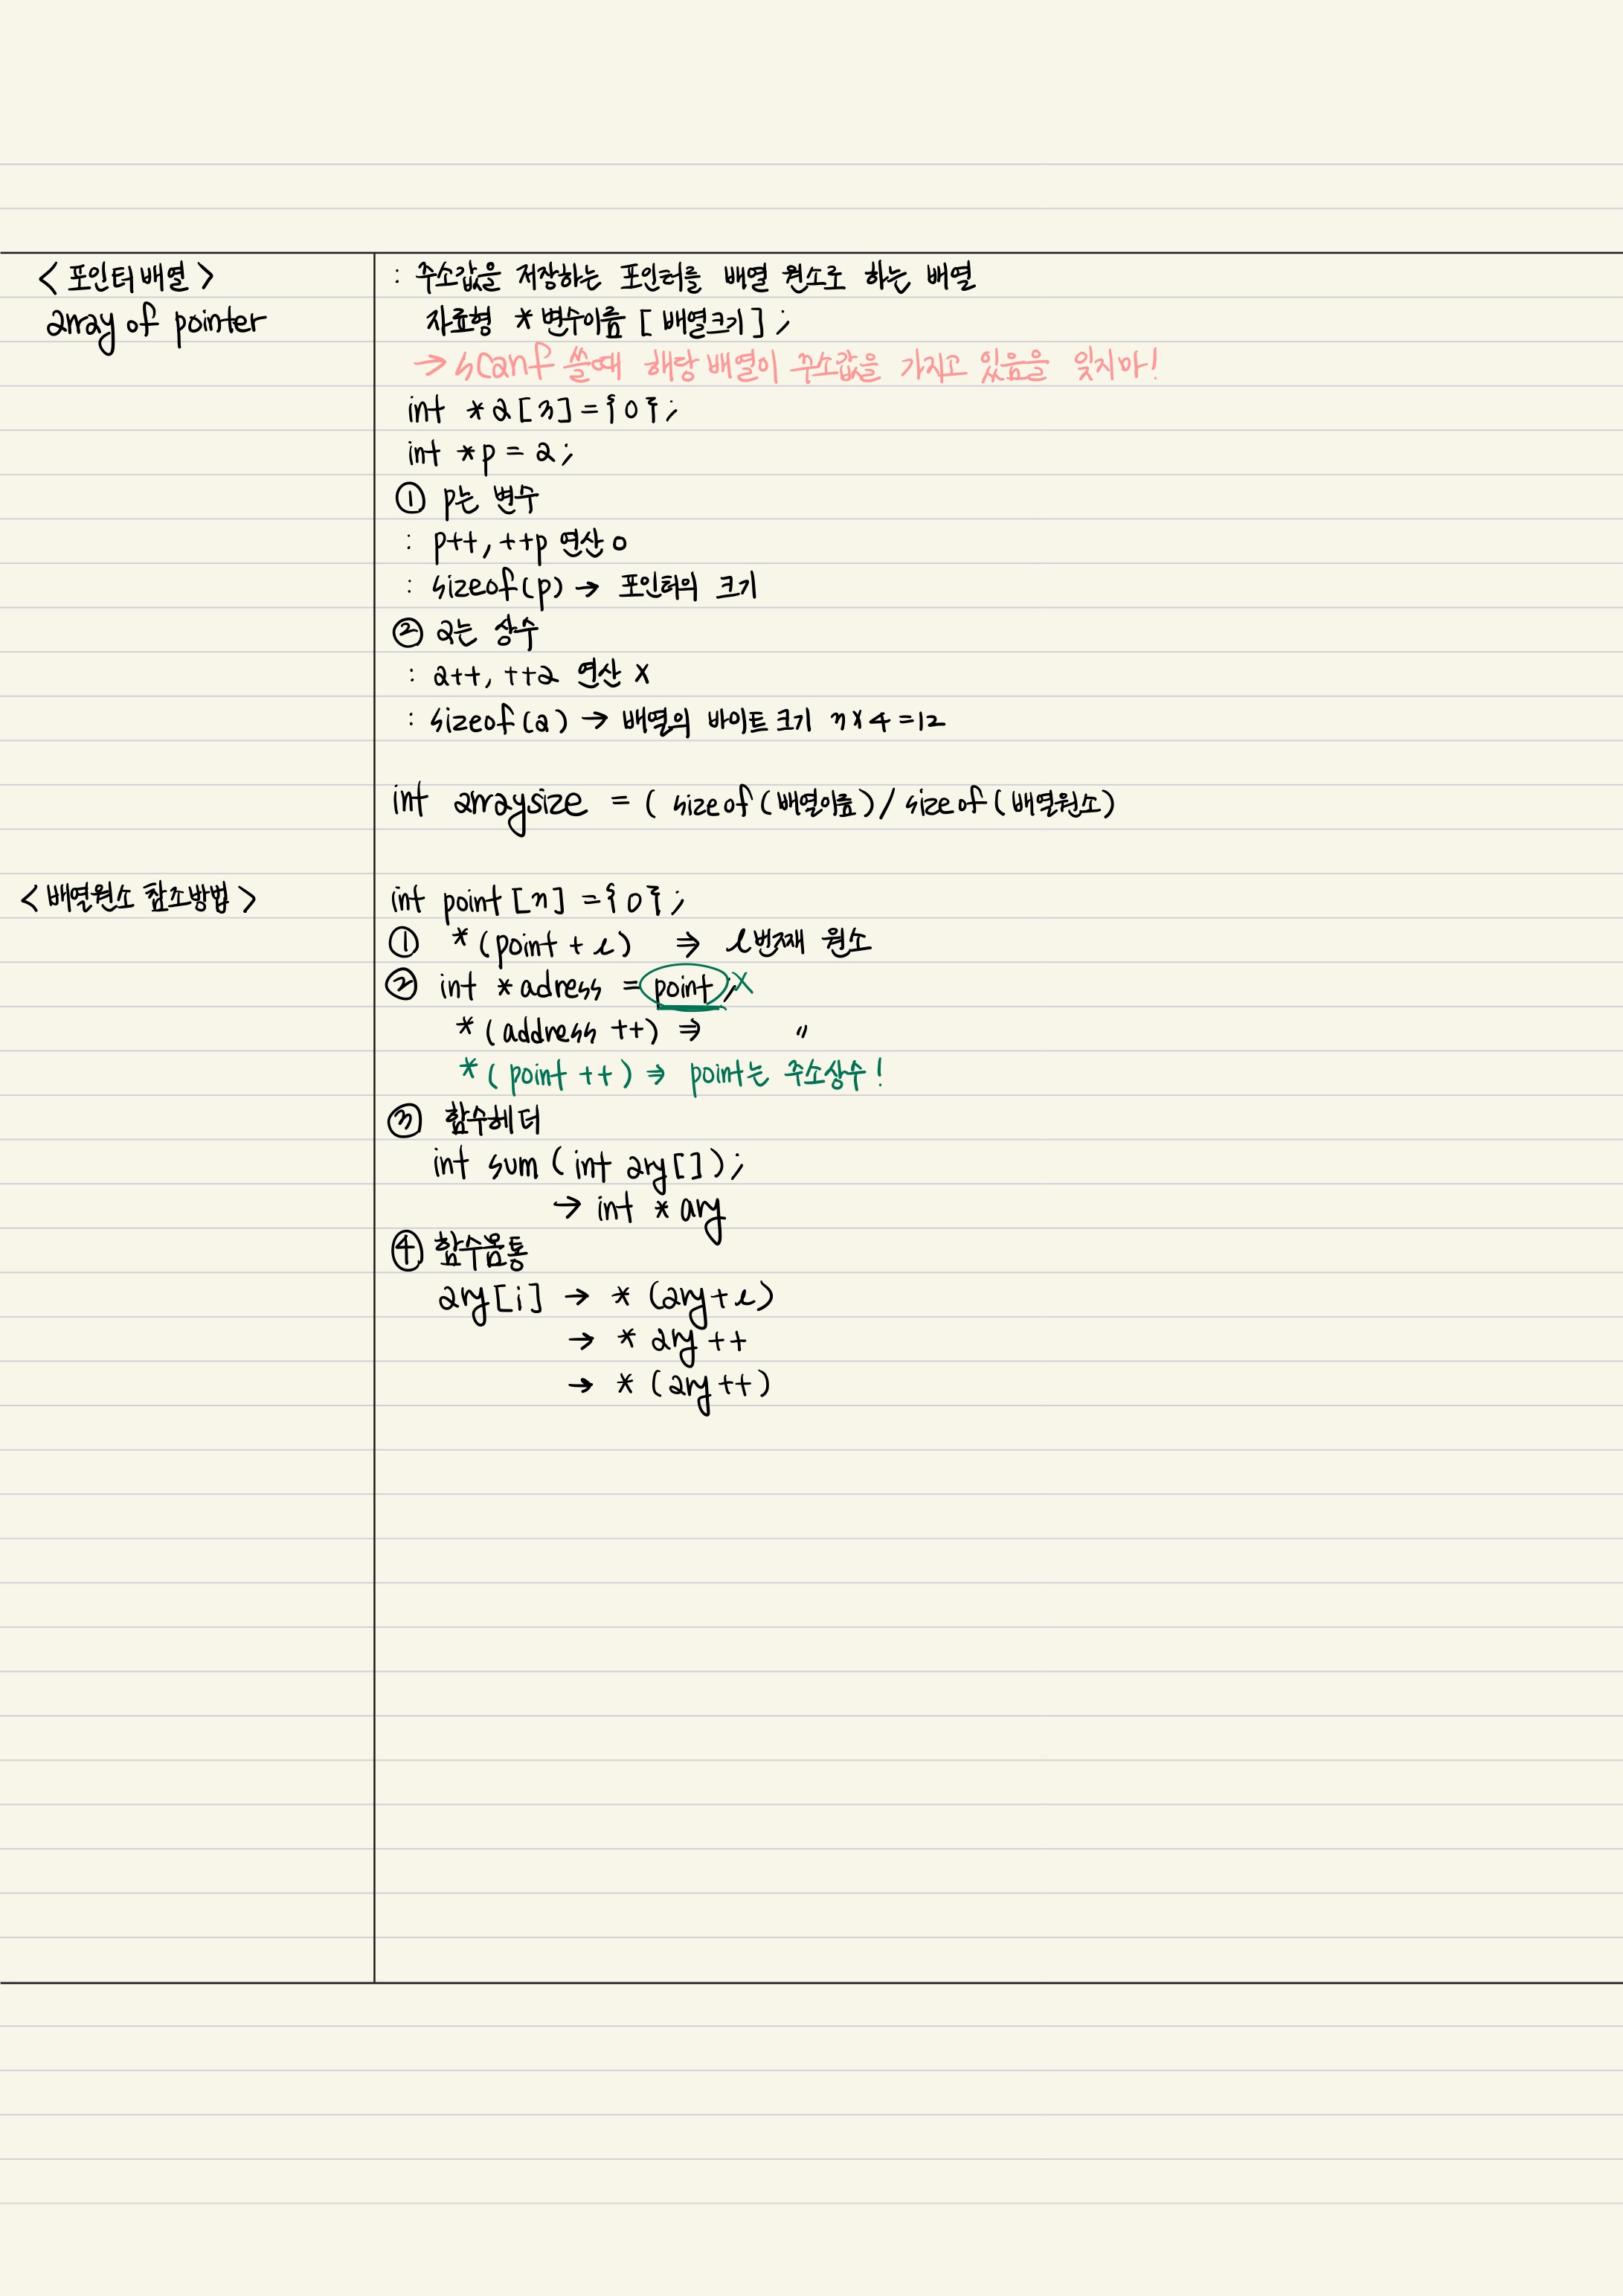 <포인터배열>
array of pointer
: 주소값을 저장하는 포인터를 배열 원소로 하는 배열
자료형 *변수이름 [배열크기];
→ scanf 쓸때 해당 배열이 주소값을 가지고 있음을 잊지마!
int *a[3]={0};
int *p = a;
① p는 변수
: p++, ++p 연산 o
: sizeof(p) → 포인터의 크기
② a는 상수
: a++, ++a 연산 x
: sizeof(a) → 배열의 바이트 크기 3×4=12
int arraysize = ( sizeof(배열이름)/sizeof(배열원소)
<배열원소 참조방법>
int point[n] ={0};
① *(point + i) ⇒ i번째 원소
② int *adress = point; X
*(address ++) ⇒ 〃
*( point ++ ) ⇒ point는 주소상수!
③ 함수헤더
int sum (int ary[]);
→ int * ary
④ 함수몸통
ary[i] → * (ary+i)
→ * ary ++
→ * (ary++)